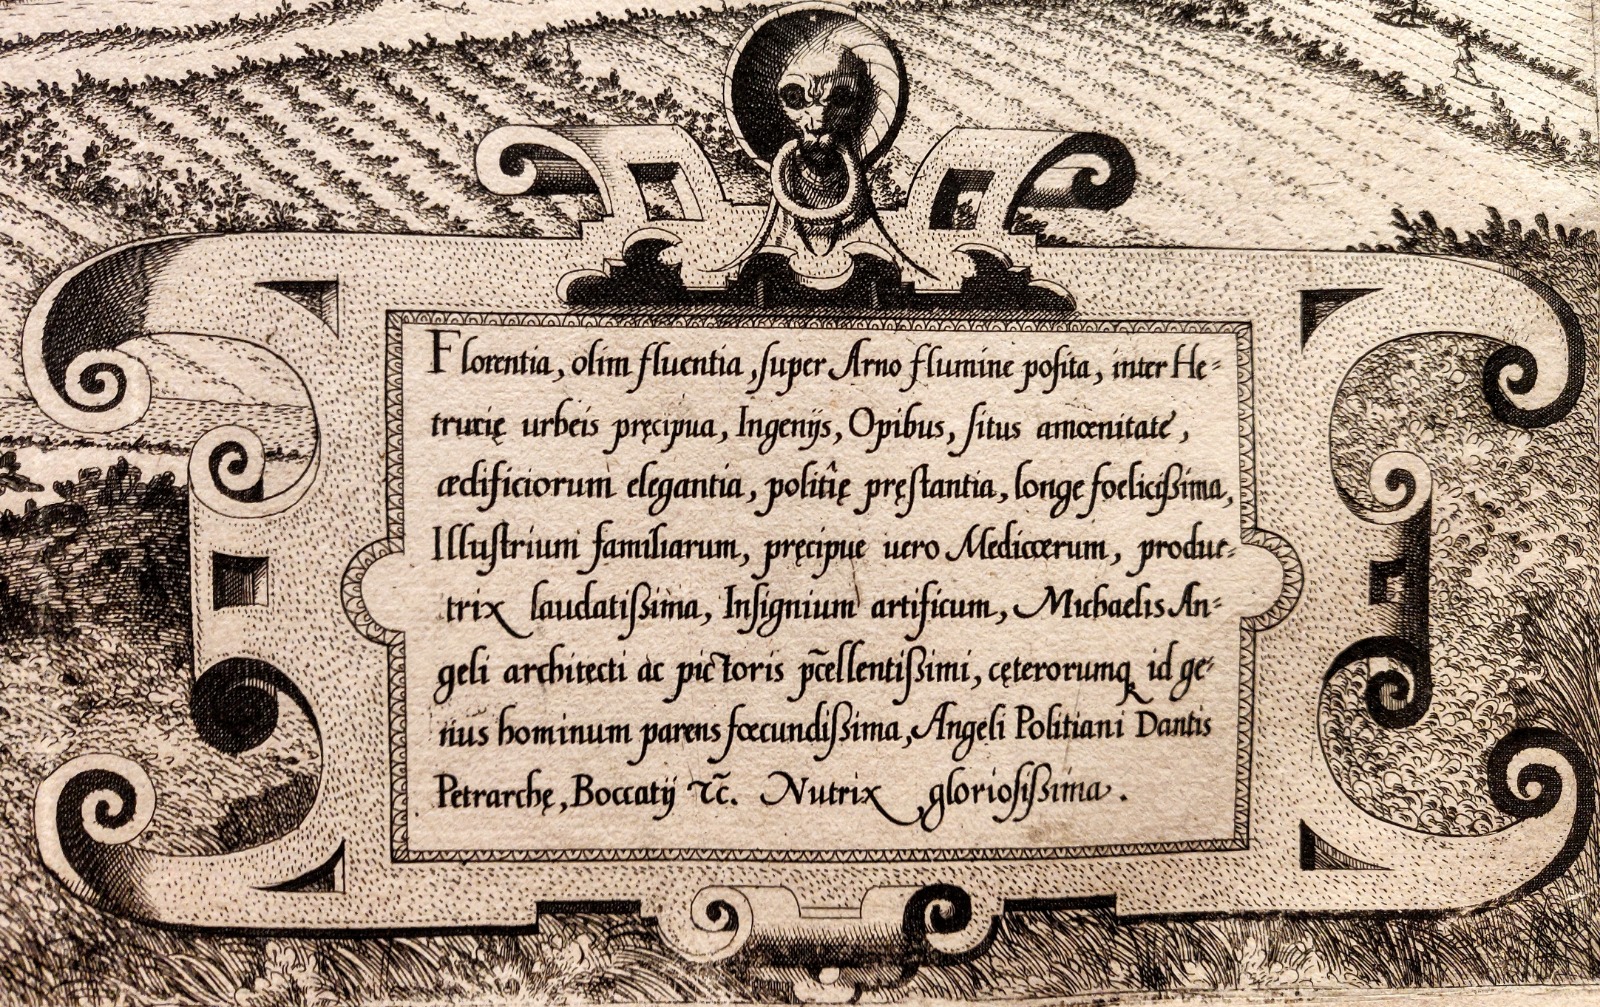 Florentia, olim fluentia, ſuper Arno flumine poſita, inter He⸗
trurię urbeis pręcipua, Ingenijs, Opibus, ſitus amœnitate,
ædificiorum elegantia, politię pręſtantia, longe foeliciſßima,
Illuſtrium familiarum, pręcipue uero Mediceorum, produc⸗
trix laudatiſßima, Inſignium artificum, Michaelis An⸗
geli architecti ac pictoris p̃cellentiſßimi, cęterorumq id ge⸗
nus hominum parens fœcundiſßima, Angeli Politiani Dantis
Petrarchę, Boccatij ⁊c̃. Nutrix glorioſiſßima.